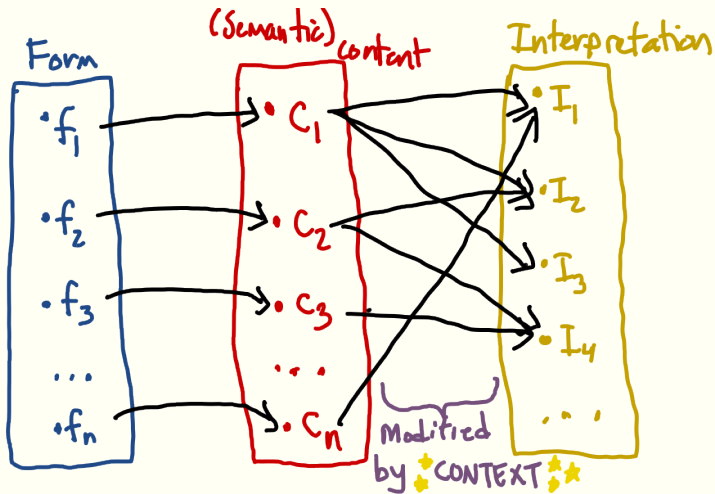 Form
f1
f2
f3
...
fn
(Semantic)
content
C1
C2
C3
...
Cn
Interpretation
I1
I2
I3
I4
...
Modified
by CONTEXT